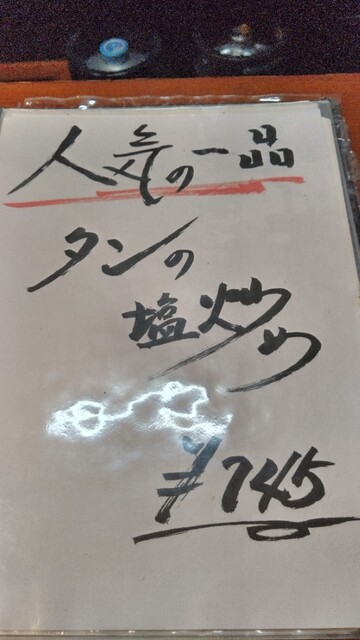 人気の一品
タンの
塩炒め
¥745